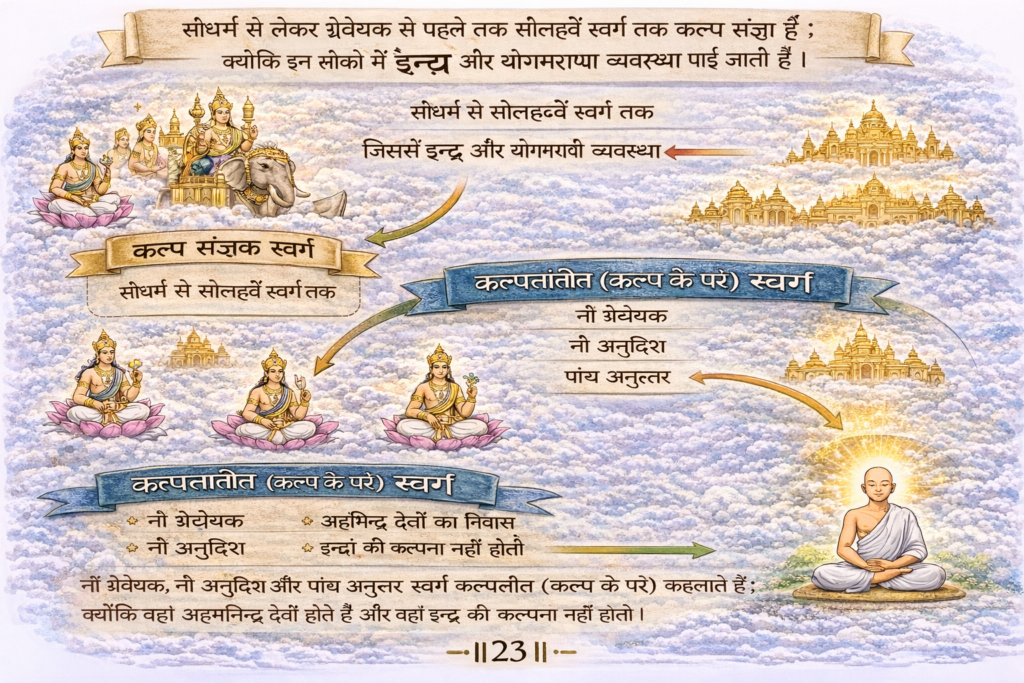 सीधर्म से लेकर ग्रेवेयक से पहले तक सीलहवें स्वर्ग तक कल्प संज्ञा हैं ;
क्योकि इन सोको में इन्द्र और योगमराप्पा व्यवस्था पाई जाती हैं ।
सीधर्म से सोलहव्वें स्वर्ग तक
जिससें इन्द्र और योगमरावी व्यवस्था
कल्प संज्ञक स्वर्ग
सीधर्म से सोलहवें स्वर्ग तक
कल्पतांतीत (कल्प के परे) स्वर्ग
नी ग्रेयेयक
नी अनुदिश
पांय अनुत्तर
कत्पतातीत (कल्प के परे) स्वर्ग
नी ग्रेटोयक
अहंमिन्द्र देवों का निवास
नी अनुदिश
इन्द्रां की कल्पना नहीं होती
नीं ग्रेवेयक, नी अनुदिश और पांय अनुत्तर स्वर्ग कल्पलीत (कल्प के परे) कहलाते हैं ;
क्योंकि वहां अहमनिन्द्र देवीं होते हैं और वहां इन्द्र की कल्पना नहीं होतो ।
॥ 23 ॥